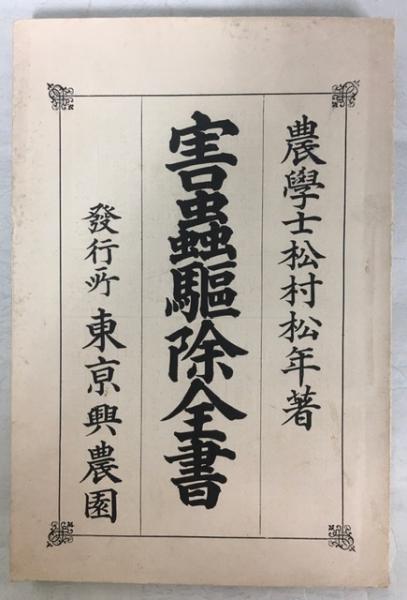 農學士松村松年著
害蟲驅除全書
發行所東京興農園